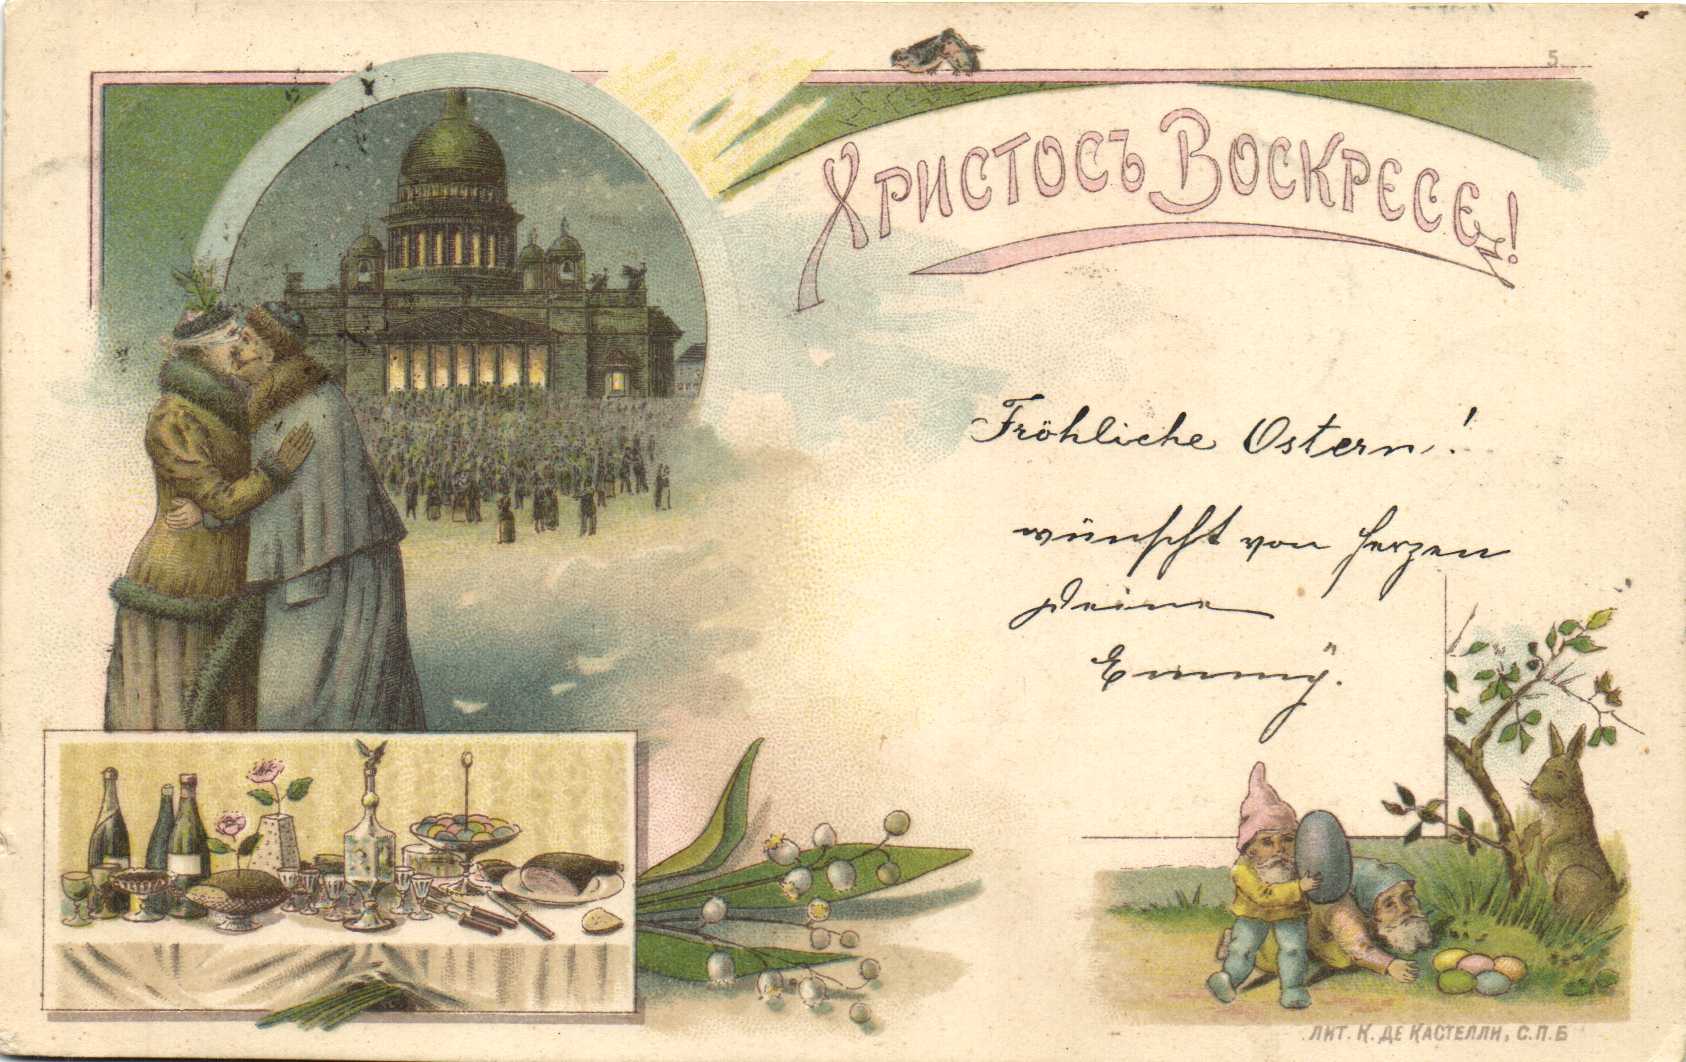 5
Христосъ Воскресе!
Fröhliche Ostern!
wünscht von Herzen
Deine
Emmÿ.
ЛИТ. К. ДЕ КАСТЕЛЛИ, С.П.Б